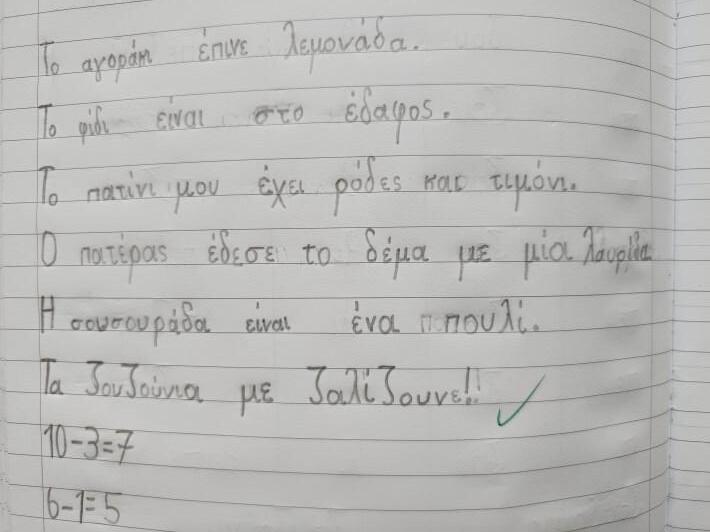 Το αγοράκι έπινε λεμονάδα.
Το φίδι είναι στο έδαφος.
Το πατίνι μου έχει ρόδες και τιμόνι.
Ο πατέρας έδεσε το δέμα με μία
Η σουσουράδα είναι ένα πουλί.
Τα ζουζούνια με ζαλίζουνε!!
10-3=7
6-1=5